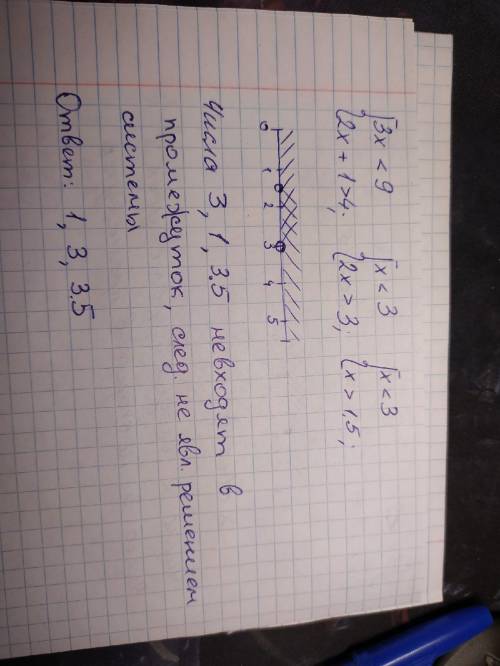 {3x < 9 {x < 3 {x < 3
{2x + 1 > 4; {2x > 3; {x > 1.5;
0 1 2 3 4 5
Числа 3, 1, 3.5 невходят в
промежуток, след. не явл. решением
системы
Ответ: 1, 3, 3.5